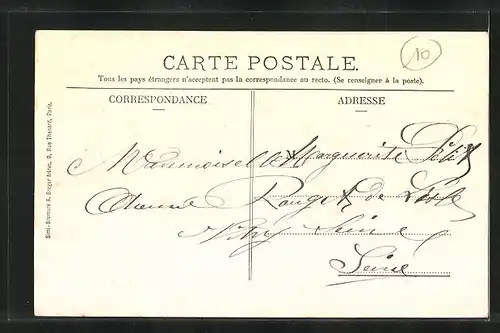 10
CARTE POSTALE.
Tous les pays étrangers n'acceptent pas la correspondance au recto. (Se renseigner à la poste).
CORRESPONDANCE
ADRESSE
Mademoiselle Marguerite
Avenue Rouget de Lisle
Vitry Seine
Seine
Rue Thenard, Paris.